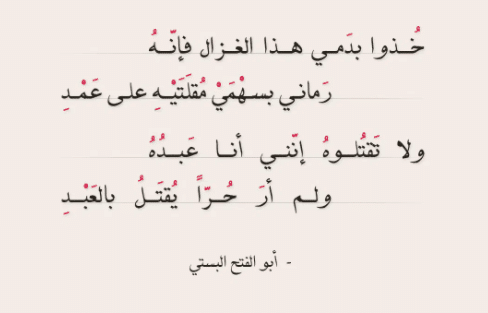 خُـذوا بدَمـي هـذا الغـزال فإنّـهُ
رَماني بسـهْمَيْ مُقلَتَيْـهِ علـى عَمْـدِ
ولا تَقتُلـوهُ إنّنـي أنـا عَبـدُهُ
ولـم أرَ حُـرّاً يُقتَـلُ بالعَبْـدِ
- أبو الفتح البستي